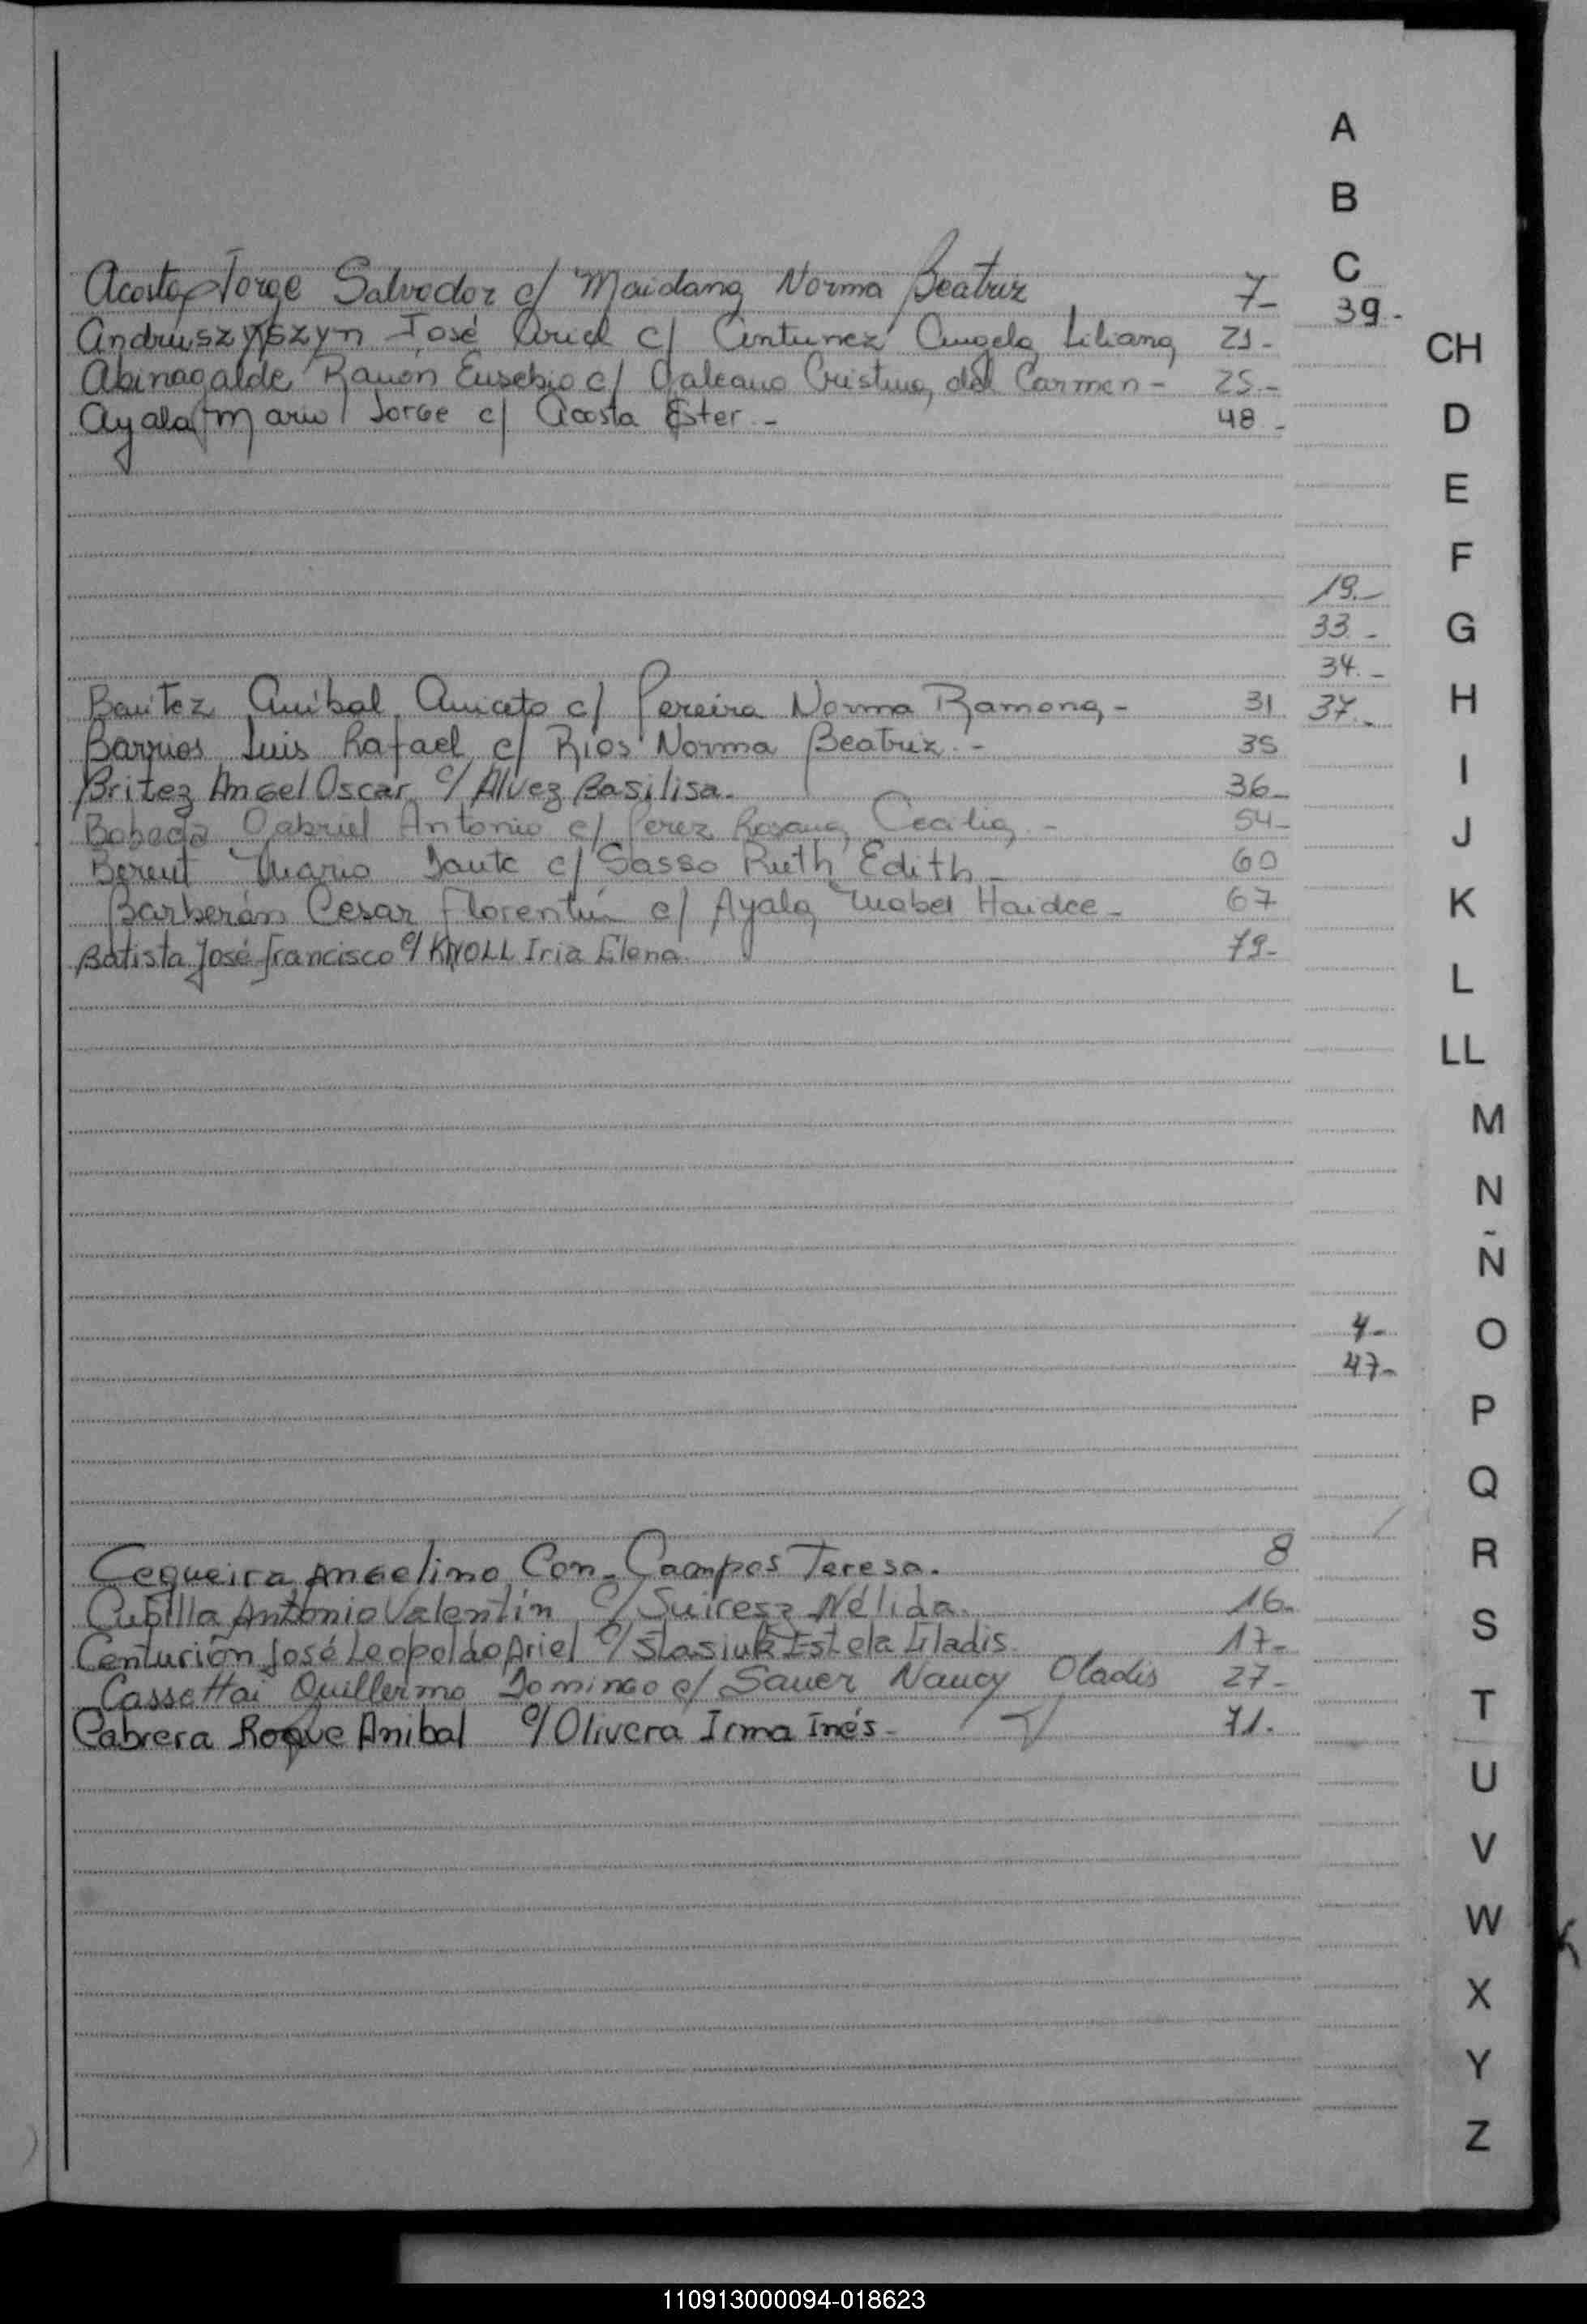 A
B
C
Acosta Jorge Salvador c/ Maidana Norma Beatriz 7-
39.-
Andruszyszyn José Ariel c/ Antunez Angela Liliana 21.-
CH
Abinagalde Ramon Eusebio c/ Galeano Cristina del Carmen - 25.-
Ayala Mario Jorge c/ Acosta Ester.- 48.-
D
E
F
19.-
33.-
G
34.-
Benitez Anibal Aniceto c/ Pereira Norma Ramona.- 31
37.-
H
Barrios Luis Rafael c/ Rios Norma Beatriz.- 35
I
Britez Angel Oscar c/ Alvez Basilisa. 36-
Bobada Gabriel Antonio c/ Perez Rosana Cecilia.- 54-
J
Berent Mario Dante c/ Sasso Ruth Edith- 60
Barberán Cesar Florentín c/ Ayala Mabel Haidee- 67
K
Batista José Francisco c/ KNOLL Iria Elena. 79-
L
LL
M
N
Ñ
4-
O
47-
P
Q
Cequeira Angelino Con- Campos Teresa. 8
R
Cubilla Antonio Valentín c/ Suiresz Nélida. 16.
S
Centurión José Leopoldo Ariel c/ Stasiuk Estela Gladis. 17-
Cassettai Guillermo Domingo c/ Sauer Nancy Gladis 27-
T
Cabrera Roque Anibal c/ Olivera Irma Inés- 71.
U
V
W
X
Y
Z
110913000094-018623